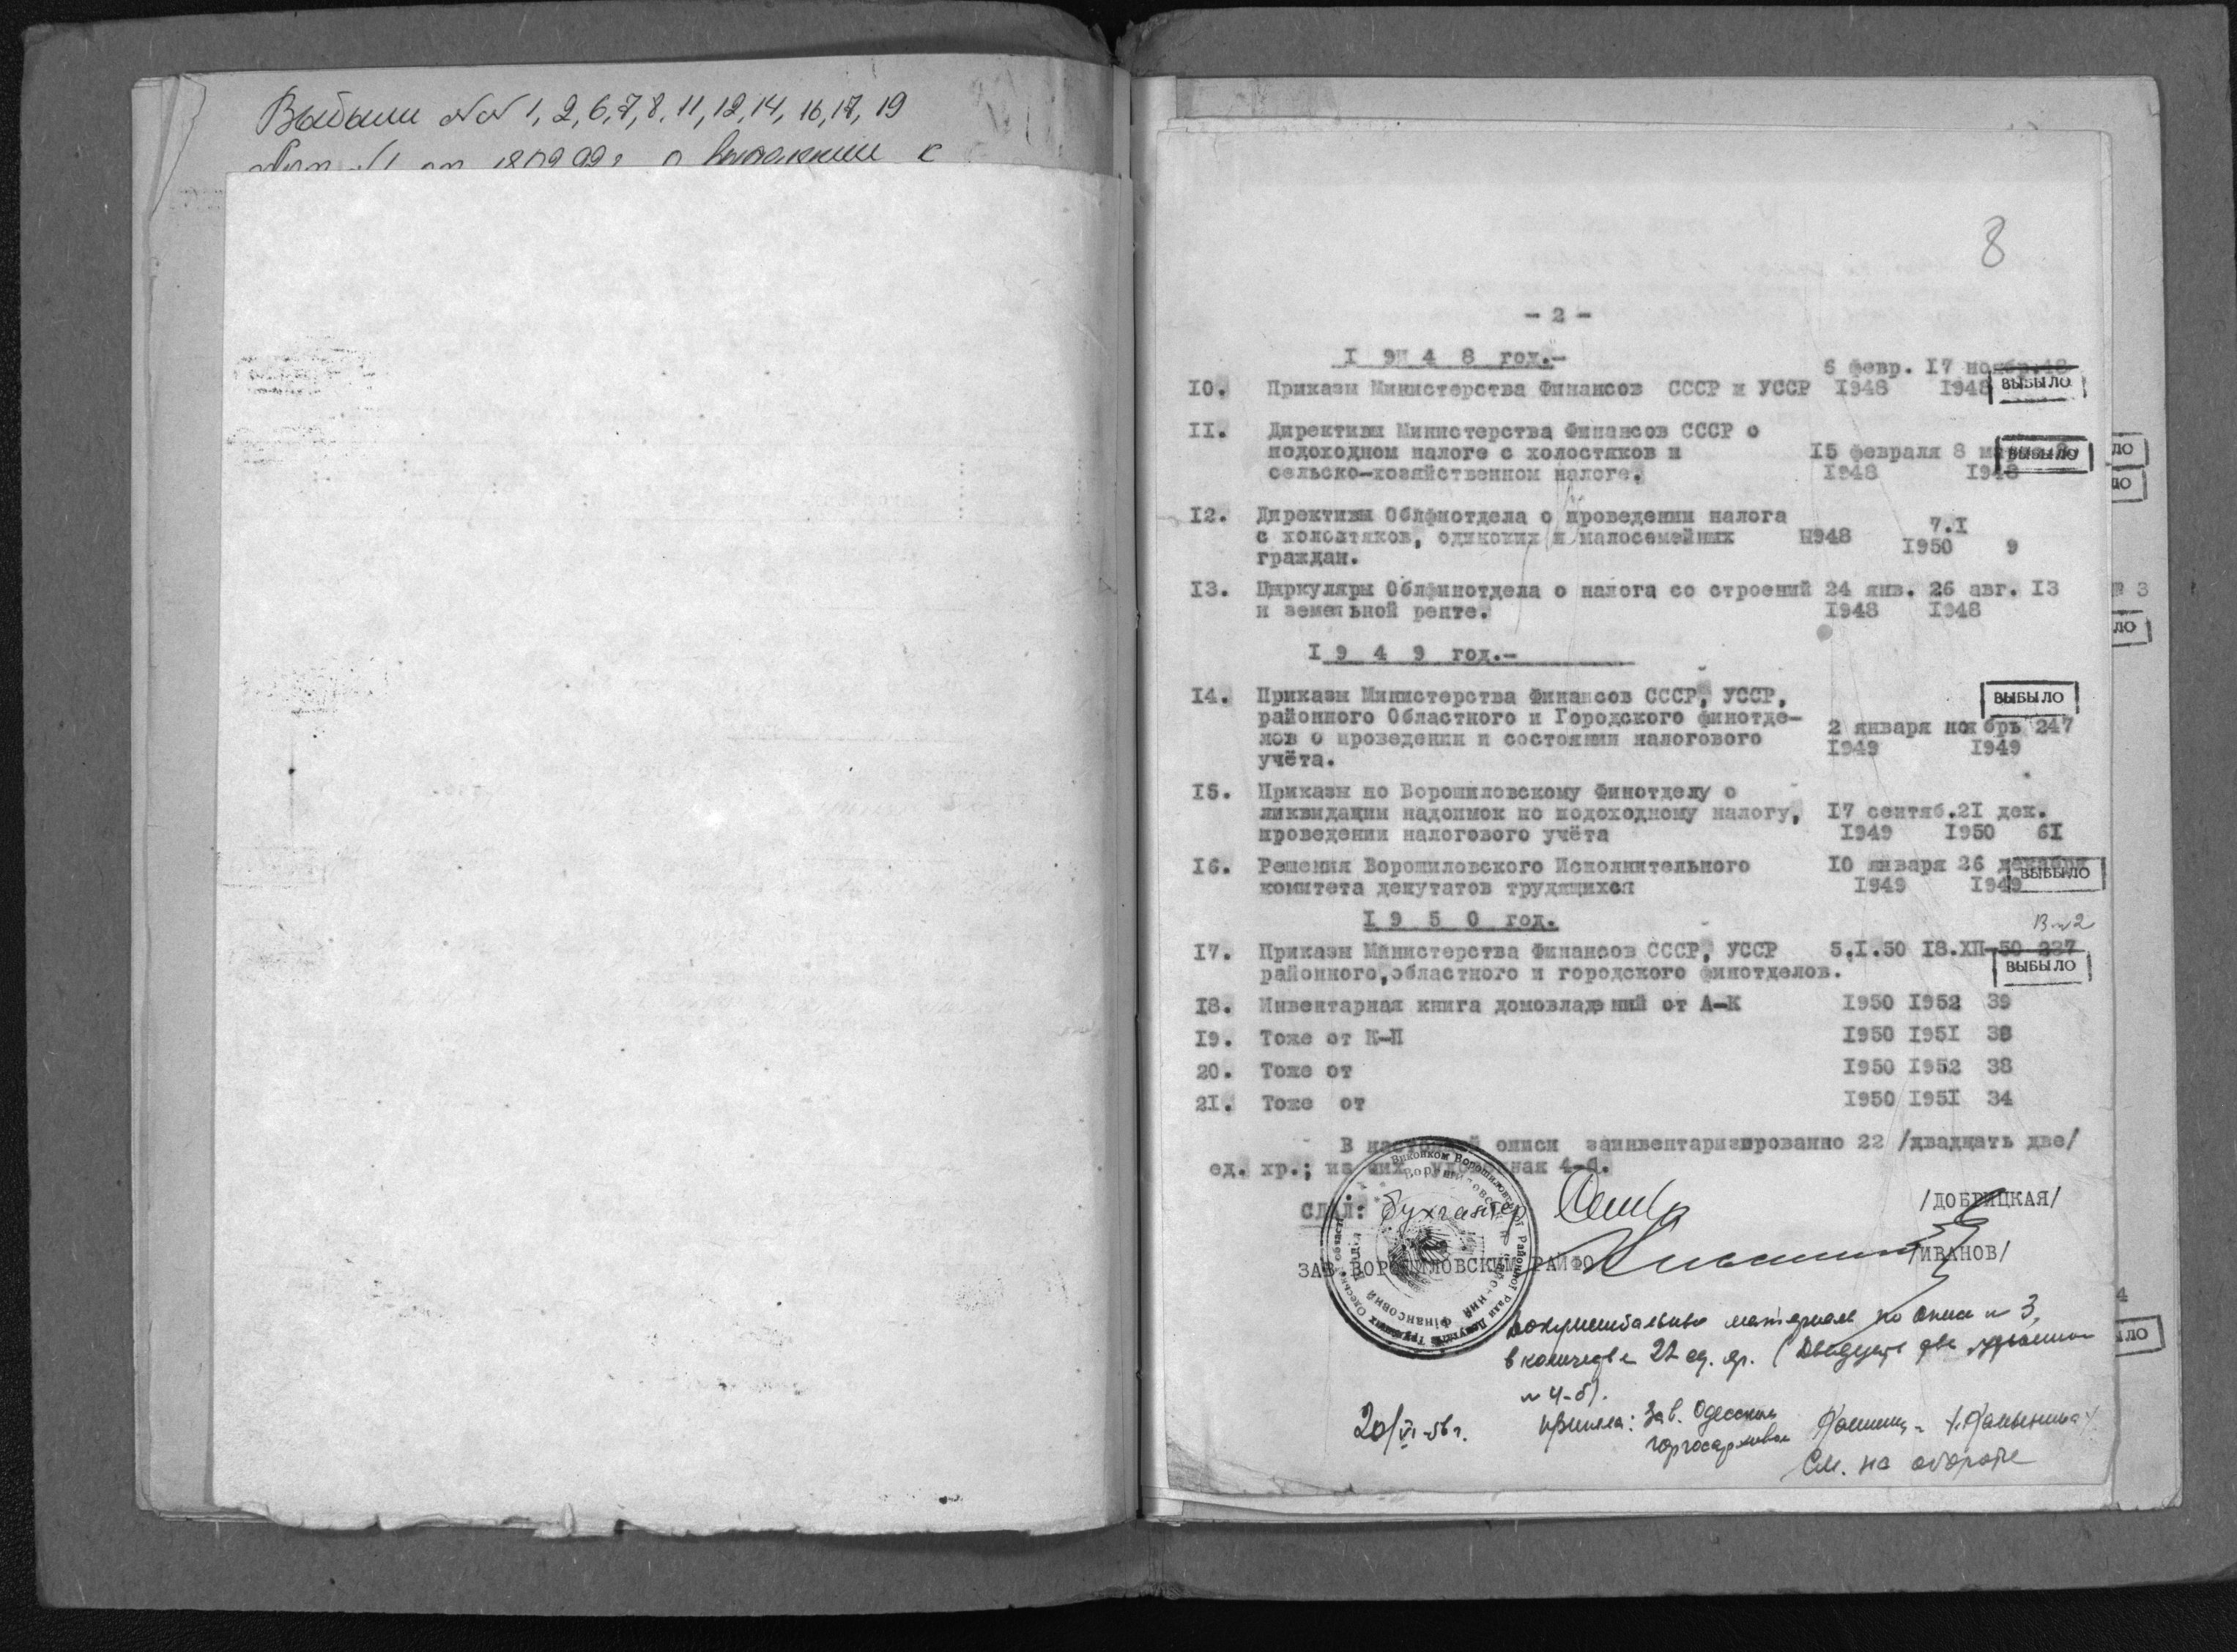 Выбыли №№ 1, 2, 6, 7, 8, 11, 12, 14, 16, 17, 19
8
- 2 -
I 9 4 8 год.-
6 февр. I7 ноябр.48
I0. Приказы Министерства Финансов СССР и УССР I948 I948
ВЫБЫЛО
II. Директивы Министерства Финансов СССР о
подоходном налоге с холостяков и I5 февраля 8
сельско-хозяйственном налоге. I948 I948
ВЫБЫЛО
I2. Директивы Облфмотдела о проведении налога 7.I
с холостяков, одиноких и малосемейных I948 I950 9
граждан.
I3. Циркуляры Облфинотдела о налога со строений 24 янв. 26 авг. I3
и земельной ренте. I948 I948
I 9 4 9 год.-
I4. Приказы Министерства Финансов СССР, УССР,
ВЫБЫЛО
районного Областного и Городского финотде-
лов о проведении и состоянии налогового 2 января ноябрь 247
учёта. I949 I949
I5. Приказы по Ворошиловскому Финотделу о
ликвидации надоимок по подоходному налогу, I7 сентяб.2I дек.
проведении налогового учёта I949 I950 6I
I6. Решения Ворошиловского Исполнительного I0 января 26 декабря
комитета депутатов трудящихся I949 I949
ВЫБЫЛО
I 9 5 0 год.
I7. Приказы Министерства Финансов СССР, УССР 5.I.50 I8.ХП-50 237
районного,областного и городского финотделов.
ВЫБЫЛО
I8. Инвентарная книга домовладений от А-К I950 I952 39
I9. Тоже от К-П I950 I95I 38
20. Тоже от I950 I952 38
2I. Тоже от I950 I95I 34
В настоящей описи заинвентаризированно 22 /двадцать две/
ед. хр.; из них 4-б.
СДАЛ: бухгалтер /ДОБРИЦКАЯ/
ЗАВ.ВОРОШИЛОВСКИМ РАЙФО /ИВАНОВ/
Документальные материалы по описи № 3,
в количестве 22 ед. хр. (Двадцать две
№ 4-б).
20/VI-56 г. приняла: Зав. Одесским
горгосархивом
См. на обороте